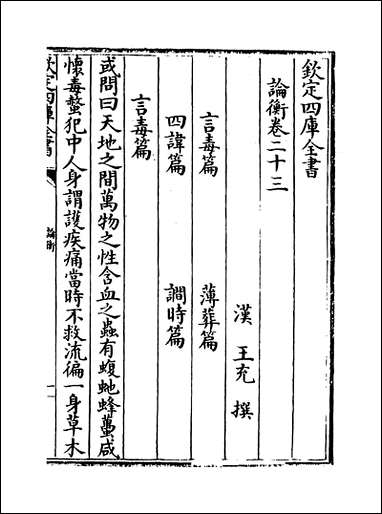 欽定四庫全書
論衡卷二十三
漢 王充 撰
言毒篇 薄葬篇
四諱篇 譋時篇
言毒篇
或問曰天地之間萬物之性含血之蟲有蝮虵蜂蠆咸
懷毒螫犯中人身謂護疾痛當時不救流徧一身草木
欽定四庫全書
論衡
一